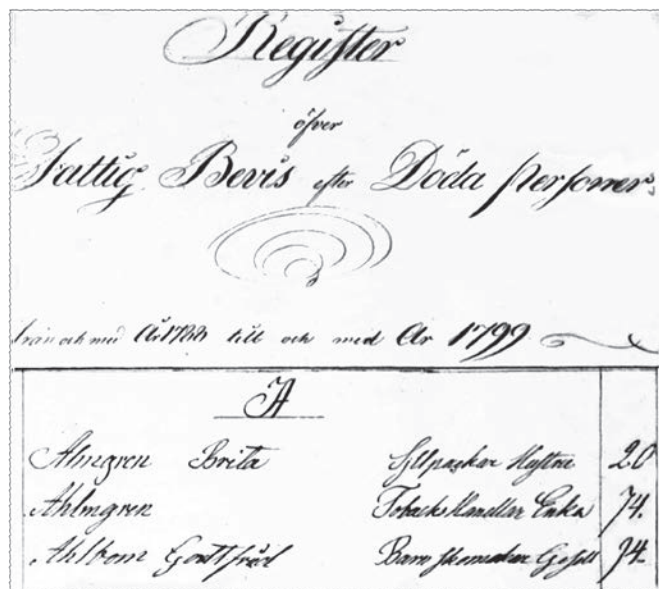 Register
öfver
Fattig Bevis efter Döda Personer
från och med År 1788 till och med År 1799
A
Almgren Brita Sillpackar Hustru 20
Ahlmgren Tobaks Handlar Enka 74.
Ahlbom Gottfrid Barn Skomakar Gesäll 74